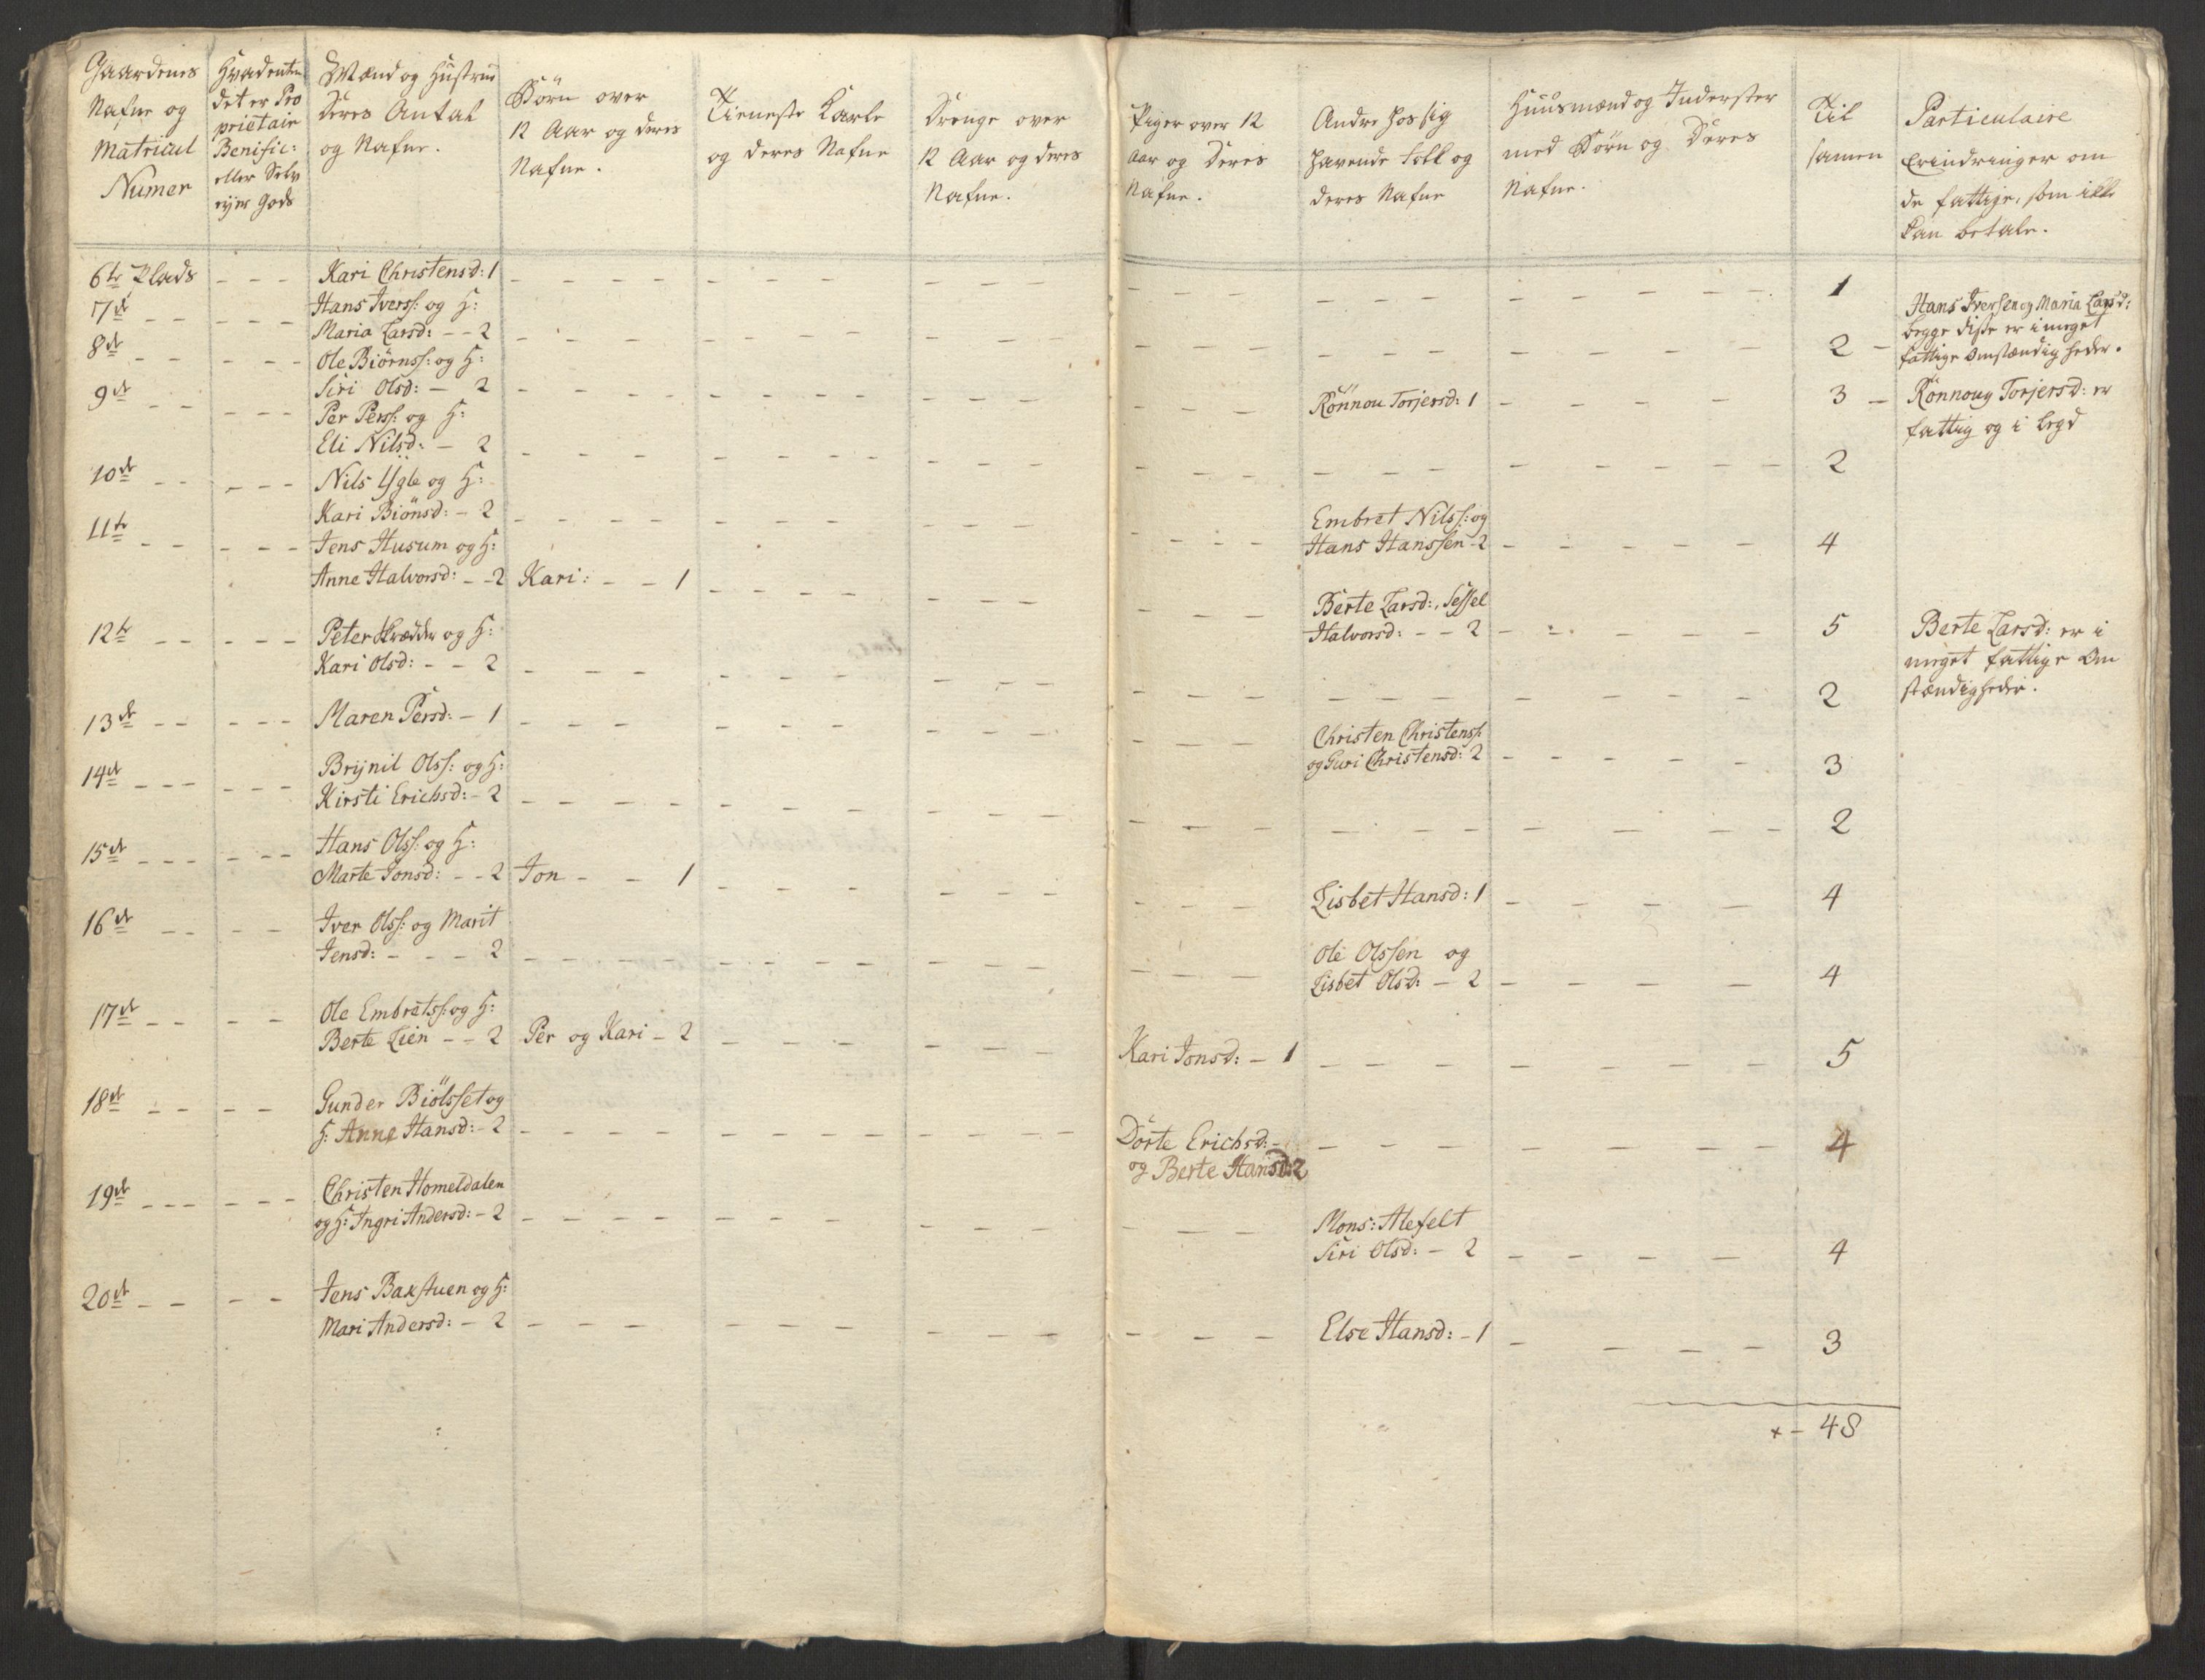 Gaardenes
Nafne og
Matricul
Numer
Hvadenten
det er Pro
prietair
Benific:
eller Selv
eyer Gods
Mænd og Hustrue
Deres Antal
og Nafne.
Börn over
12 Aar og deres
Nafne.
Tieneste Karle
og deres Nafne
Drenge over
12 Aar og deres
Nafne.
Piger over 12
Aar og Deres
Nafne.
Andre hos sig
havende folk og
deres Nafne
Huusmænd og Inderster
med Börn og Deres
Nafne.
Til
samen
Particulaire
Erindringer om
de fattige, som ikke
kan betale.
6te Plads - - - Kari Christensd: 1 - - - 1
7de - - - Hans Iverss: og H:
Maria Larsd: - - 2 - - - 2 -
Hans Iversen og Maria Larsd:
begge disse er i meget
fattige Omstændigheder.
8de - - - Ole Biörnss: og H:
Siri Olsd: - 2 - - - Rönnou Torjersd: 1 - - - 3 -
Rönnoug Torjersd: er
fattig og i legd
9de - - - Per Perss: og H:
Eli Nilsd: - 2 - - - 2
10de - - - Nils Ygle og H:
Kari Biönsd: - 2 - - - Embret Nilss: og
Hans Hanssen - 2 - - - 4
11te - - - Jens Husum og H:
Anne Halvorsd: - - 2 Kari: - - 1 - - - Berte Larsd:, Sessel
Halvorsd: - - 2 - - - 5
Berte Larsd: er i
meget fattige Om
stændigheder.
12te - - - Peter Skrædder og H:
Kari Olsd: - - 2 - - - 2
13de - - - Maren Persd: - 1 - - - Christen Christenss:
og Guri Christensd: 2 - - - 3
14de - - - Brynil Olss: og H:
Kirsti Erichsd: - 2 - - - 2
15de - - - Hans Olss: og H:
Marte Jonsd: - - 2 Jon - - 1 - - - Lisbet Hansd: 1 - - - 4
16de - - - Iver Olss: og Marit
Jensd: - - - 2 - - - Ole Olssen og
Lisbet Olsd: - 2 - - - 4
17de - - - Ole Embretss: og H:
Berte Lien - - 2 Per og Kari - 2 - - - Kari Jonsd: - 1 - - - 5
18de - - - Gunder Biölsset og
H: Anne Hansd: - 2 - - - Dorte Erichsd: -
og Berte Hansd: 2 - - - 4
19de - - - Christen Homeldalen
og H: Ingri Andersd: - 2 - - - Mons: Alefelt
Siri Olsd: - 2 - - - 4
20de - - - Jens Baxstuen og H:
Mari Andersd: - 2 - - - Else Hansd: - 1 - - - 3
x - 48